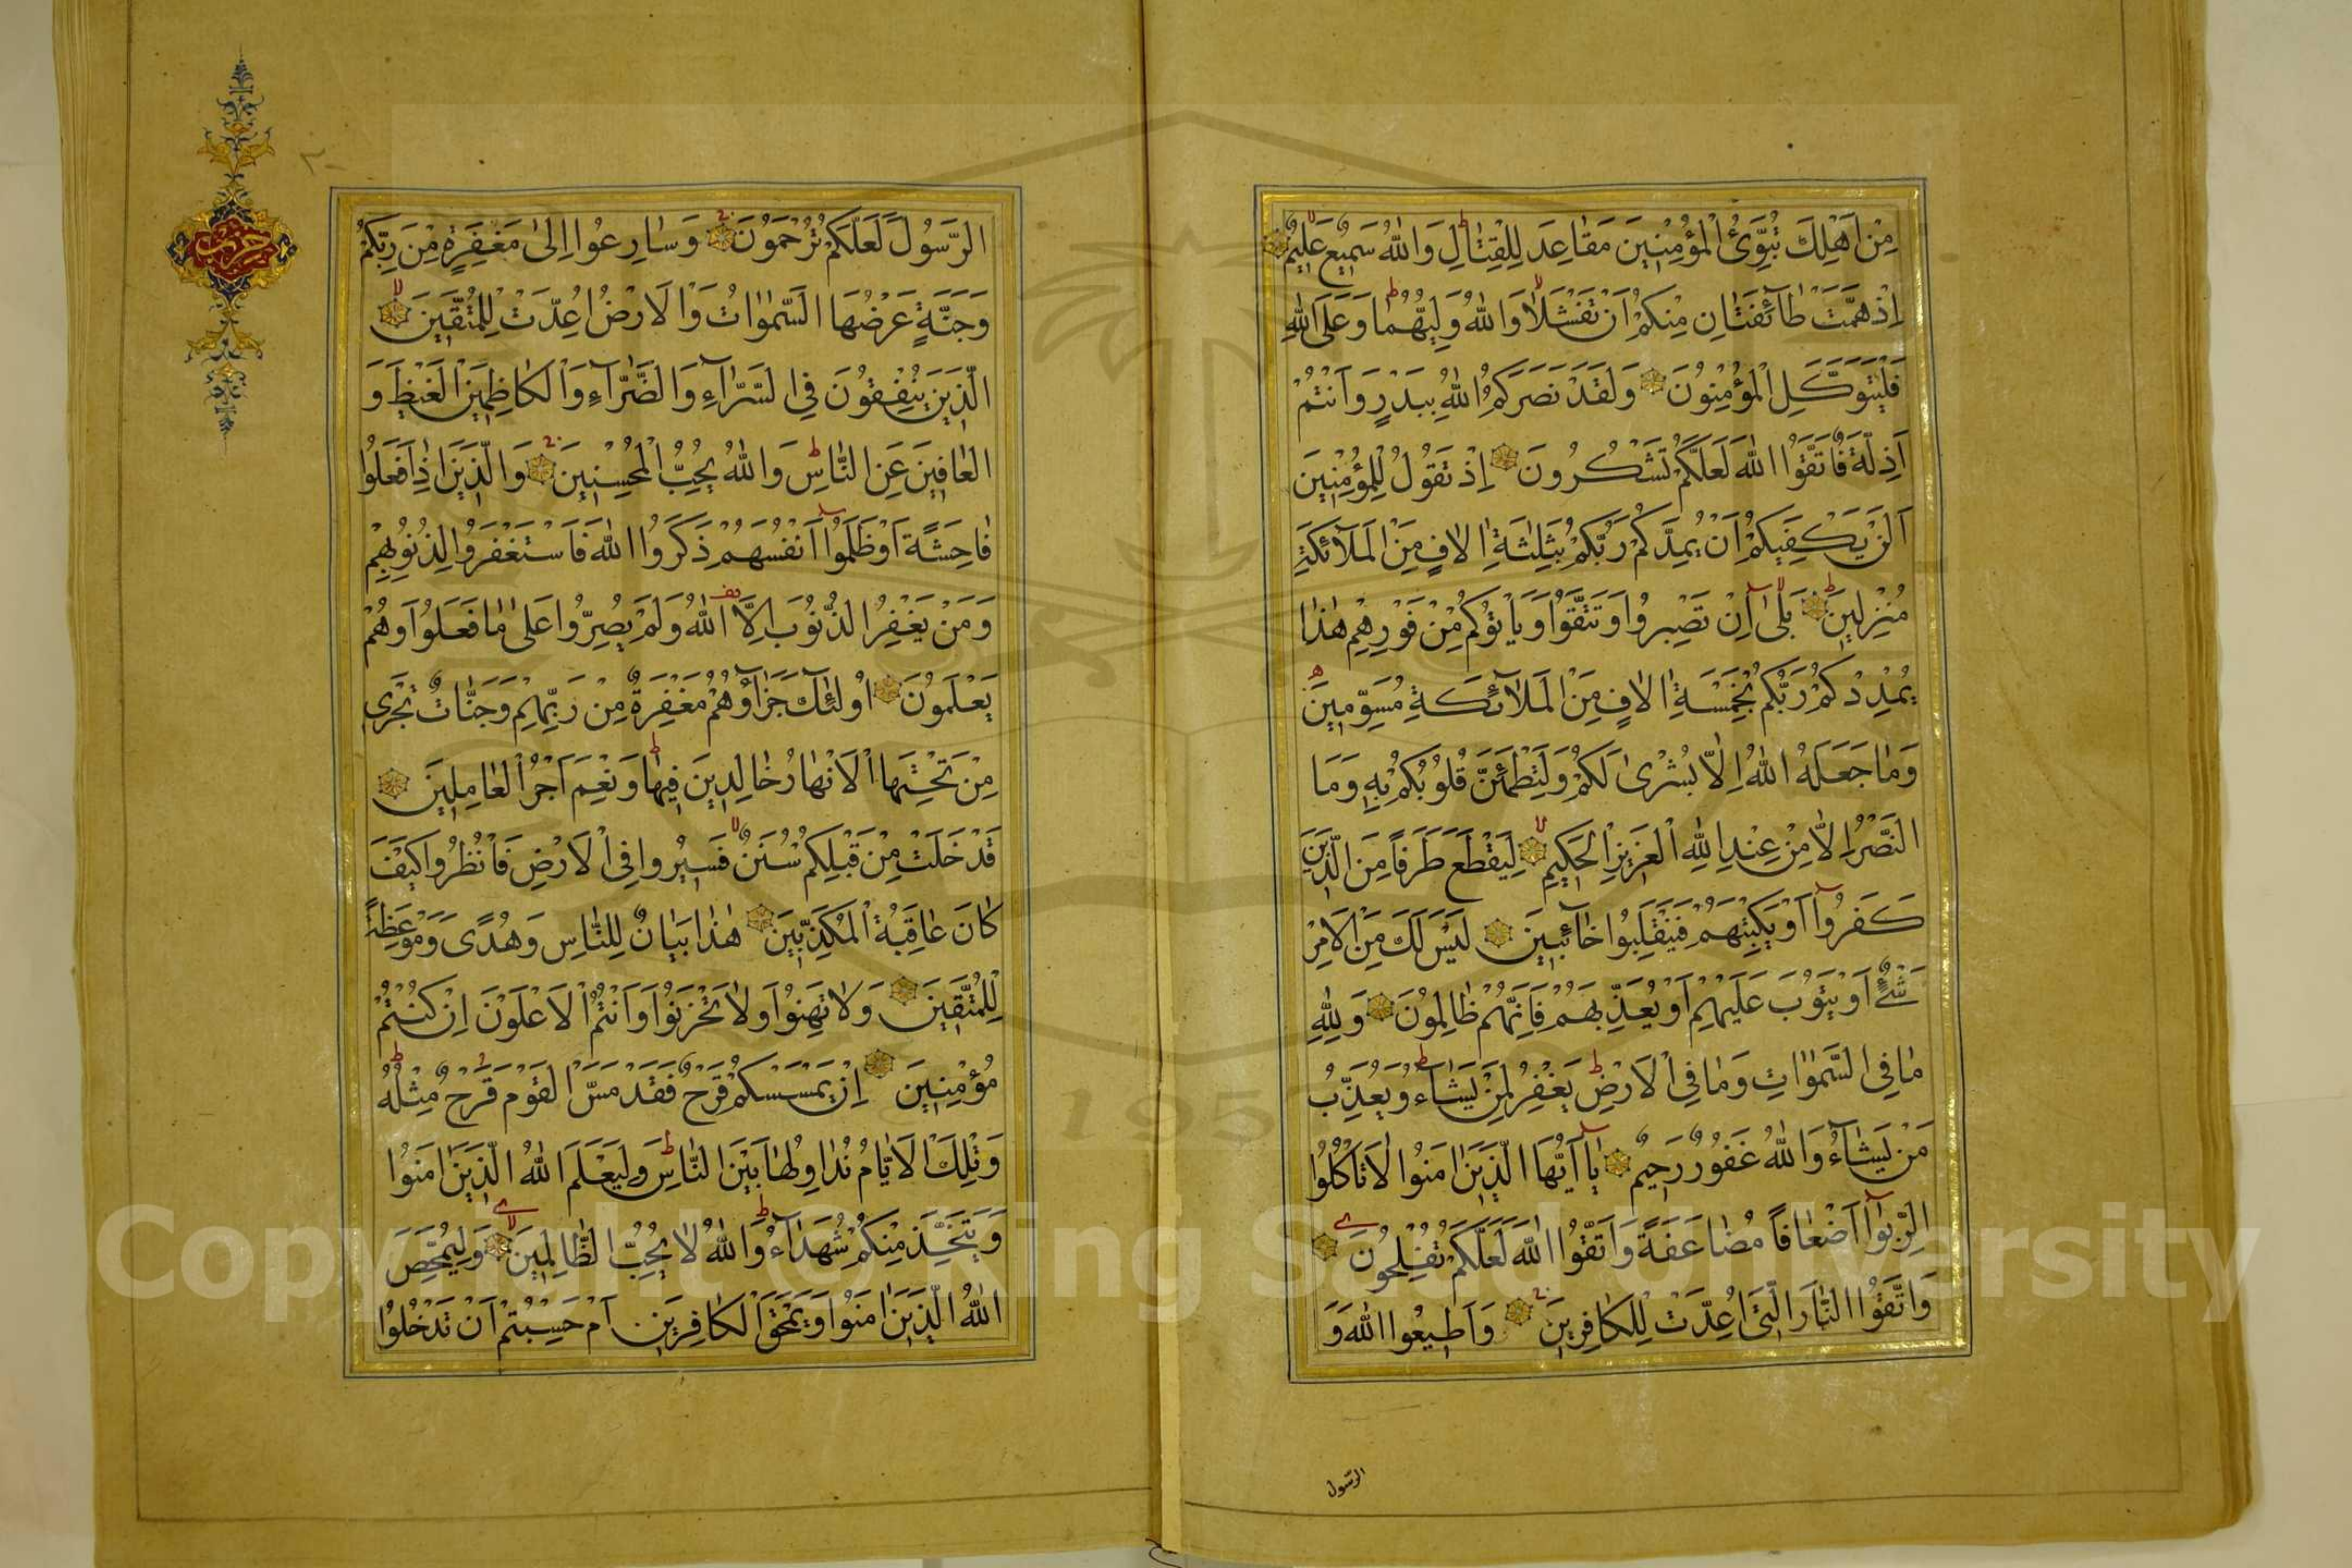 مِنْ اَهْلِكَ تُبَوِّئُ الْمُؤْمِنِينَ مَقَاعِدَ لِلْقِتَالِ وَاللّٰهُ سَمِيعٌ عَلِيمٌ
اِذْ هَمَّتْ طَآئِفَتَانِ مِنْكُمْ اَنْ تَفْشَلَا وَاللّٰهُ وَلِيُّهُمَا وَعَلَى اللّٰهِ
فَلْيَتَوَكَّلِ الْمُؤْمِنُونَ وَلَقَدْ نَصَرَكُمُ اللّٰهُ بِبَدْرٍ وَاَنْتُمْ
اَذِلَّةٌ فَاتَّقُوا اللّٰهَ لَعَلَّكُمْ تَشْكُرُونَ اِذْ تَقُولُ لِلْمُؤْمِنِينَ
اَلَنْ يَكْفِيَكُمْ اَنْ يُمِدَّكُمْ رَبُّكُمْ بِثَلٰثَةِ اٰلَافٍ مِنَ الْمَلَآئِكَةِ
مُنْزَلِينَ بَلٰٓى اِنْ تَصْبِرُوا وَتَتَّقُوا وَيَاْتُوكُمْ مِنْ فَوْرِهِمْ هٰذَا
يُمْدِدْكُمْ رَبُّكُمْ بِخَمْسَةِ اٰلَافٍ مِنَ الْمَلَآئِكَةِ مُسَوِّمِينَ
وَمَا جَعَلَهُ اللّٰهُ اِلَّا بُشْرٰى لَكُمْ وَلِتَطْمَئِنَّ قُلُوبُكُمْ بِهِ وَمَا
النَّصْرُ اِلَّا مِنْ عِنْدِ اللّٰهِ الْعَزِيزِ الْحَكِيمِ لِيَقْطَعَ طَرَفًا مِنَ الَّذِينَ
كَفَرُوٓا اَوْ يَكْبِتَهُمْ فَيَنْقَلِبُوا خَآئِبِينَ لَيْسَ لَكَ مِنَ الْاَمْرِ
شَيْءٌ اَوْ يَتُوبَ عَلَيْهِمْ اَوْ يُعَذِّبَهُمْ فَاِنَّهُمْ ظَالِمُونَ وَلِلّٰهِ
مَا فِي السَّمٰوَاتِ وَمَا فِي الْاَرْضِ يَغْفِرُ لِمَنْ يَشَآءُ وَيُعَذِّبُ
مَنْ يَشَآءُ وَاللّٰهُ غَفُورٌ رَحِيمٌ يَآ اَيُّهَا الَّذِينَ اٰمَنُوا لَا تَاْكُلُوا
الرِّبٰوٓا اَضْعَافًا مُضَاعَفَةً وَاتَّقُوا اللّٰهَ لَعَلَّكُمْ تُفْلِحُونَ
وَاتَّقُوا النَّارَ الَّتِي اُعِدَّتْ لِلْكَافِرِينَ وَاَطِيعُوا اللّٰهَ وَ
الرسول
الرَّسُولَ لَعَلَّكُمْ تُرْحَمُونَ وَسَارِعُوا اِلٰى مَغْفِرَةٍ مِنْ رَبِّكُمْ
وَجَنَّةٍ عَرْضُهَا السَّمٰوَاتُ وَالْاَرْضُ اُعِدَّتْ لِلْمُتَّقِينَ
الَّذِينَ يُنْفِقُونَ فِي السَّرَّآءِ وَالضَّرَّآءِ وَالْكَاظِمِينَ الْغَيْظَ وَ
الْعَافِينَ عَنِ النَّاسِ وَاللّٰهُ يُحِبُّ الْمُحْسِنِينَ وَالَّذِينَ اِذَا فَعَلُوا
فَاحِشَةً اَوْ ظَلَمُوٓا اَنْفُسَهُمْ ذَكَرُوا اللّٰهَ فَاسْتَغْفَرُوا لِذُنُوبِهِمْ
وَمَنْ يَغْفِرُ الذُّنُوبَ اِلَّا اللّٰهُ وَلَمْ يُصِرُّوا عَلٰى مَا فَعَلُوا وَهُمْ
يَعْلَمُونَ اُولٰئِكَ جَزَآؤُهُمْ مَغْفِرَةٌ مِنْ رَبِّهِمْ وَجَنَّاتٌ تَجْرِي
مِنْ تَحْتِهَا الْاَنْهَارُ خَالِدِينَ فِيهَا وَنِعْمَ اَجْرُ الْعَامِلِينَ
قَدْ خَلَتْ مِنْ قَبْلِكُمْ سُنَنٌ فَسِيرُوا فِي الْاَرْضِ فَانْظُرُوا كَيْفَ
كَانَ عَاقِبَةُ الْمُكَذِّبِينَ هٰذَا بَيَانٌ لِلنَّاسِ وَهُدًى وَمَوْعِظَةٌ
لِلْمُتَّقِينَ وَلَا تَهِنُوا وَلَا تَحْزَنُوا وَاَنْتُمُ الْاَعْلَوْنَ اِنْ كُنْتُمْ
مُؤْمِنِينَ اِنْ يَمْسَسْكُمْ قَرْحٌ فَقَدْ مَسَّ الْقَوْمَ قَرْحٌ مِثْلُهُ
وَتِلْكَ الْاَيَّامُ نُدَاوِلُهَا بَيْنَ النَّاسِ وَلِيَعْلَمَ اللّٰهُ الَّذِينَ اٰمَنُوا
وَيَتَّخِذَ مِنْكُمْ شُهَدَآءَ وَاللّٰهُ لَا يُحِبُّ الظَّالِمِينَ وَلِيُمَحِّصَ
اللّٰهُ الَّذِينَ اٰمَنُوا وَيَمْحَقَ الْكَافِرِينَ اَمْ حَسِبْتُمْ اَنْ تَدْخُلُوا
حزب
Copyright © King Saud University
195